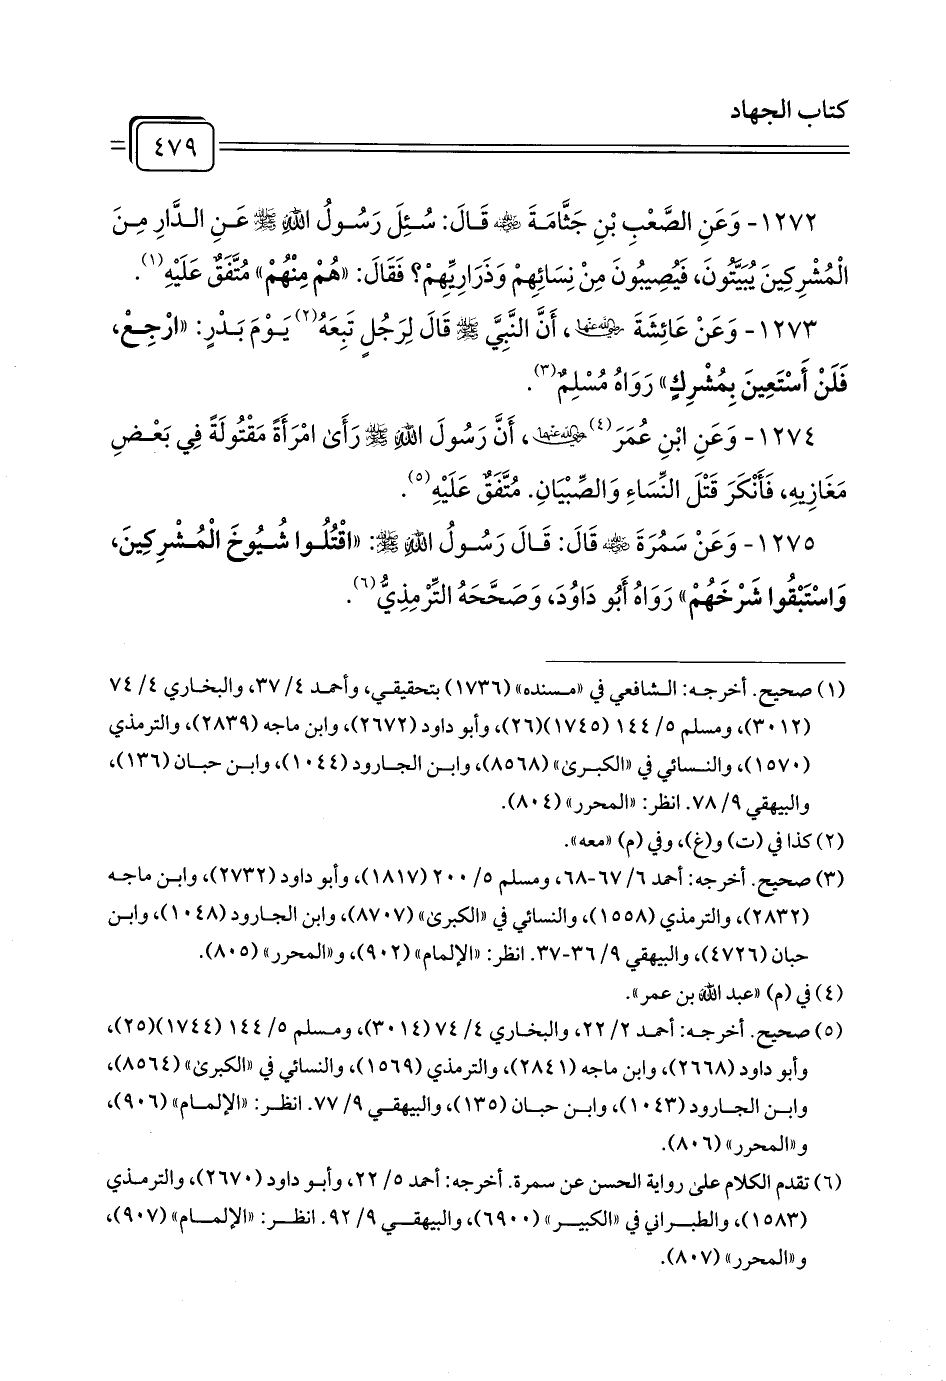 كتاب الجهاد
٤٧٩
١٢٧٢- وَعَنِ الصَّعْبِ بْنِ جَثَّامَةَ ﵁ قَالَ: سُئِلَ رَسُولُ اللهِ ﷺ عَنِ الدَّارِ مِنَ
الْمُشْرِكِينَ يُبَيَّتُونَ، فَيُصِيبُونَ مِنْ نِسَائِهِمْ وَذَرَارِيِّهِمْ؟ فَقَالَ: «هُمْ مِنْهُمْ» مُتَّفَقٌ عَلَيْهِ(١).
١٢٧٣- وَعَنْ عَائِشَةَ ﵂، أَنَّ النَّبِيَّ ﷺ قَالَ لِرَجُلٍ تَبِعَهُ(٢) يَوْمَ بَدْرٍ: «ارْجِعْ،
فَلَنْ أَسْتَعِينَ بِمُشْرِكٍ» رَوَاهُ مُسْلِمٌ(٣).
١٢٧٤- وَعَنِ ابْنِ عُمَرَ(٤) ﵄، أَنَّ رَسُولَ اللهِ ﷺ رَأَىٰ امْرَأَةً مَقْتُولَةً فِي بَعْضِ
مَغَازِيهِ، فَأَنْكَرَ قَتْلَ النِّسَاءِ وَالصِّبْيَانِ. مُتَّفَقٌ عَلَيْهِ(٥).
١٢٧٥- وَعَنْ سَمُرَةَ ﵁ قَالَ: قَالَ رَسُولُ اللهِ ﷺ: «اقْتُلُوا شُيُوخَ الْمُشْرِكِينَ،
وَاسْتَبْقُوا شَرْخَهُمْ» رَوَاهُ أَبُو دَاوُدَ، وَصَحَّحَهُ التِّرْمِذِيُّ(٦).
(١) صحيح. أخرجه: الشافعي في «مسنده» (١٧٣٦) بتحقيقي، وأحمد ٤/ ٣٧، والبخاري ٤/ ٧٤
(٣٠١٢)، ومسلم ٥/ ١٤٤ (١٧٤٥)(٢٦)، وأبو داود (٢٦٧٢)، وابن ماجه (٢٨٣٩)، والترمذي
(١٥٧٠)، والنسائي في «الكبرىٰ» (٨٥٦٨)، وابن الجارود (١٠٤٤)، وابن حبان (١٣٦)،
والبيهقي ٩/ ٧٨. انظر: «المحرر» (٨٠٤).
(٢) كذا في (ت) و(غ)، وفي (م) «معه».
(٣) صحيح. أخرجه: أحمد ٦/ ٦٧-٦٨، ومسلم ٥/ ٢٠٠ (١٨١٧)، وأبو داود (٢٧٣٢)، وابن ماجه
(٢٨٣٢)، والترمذي (١٥٥٨)، والنسائي في «الكبرىٰ» (٨٧٠٧)، وابن الجارود (١٠٤٨)، وابن
حبان (٤٧٢٦)، والبيهقي ٩/ ٣٦-٣٧. انظر: «الإلمام» (٩٠٢)، و«المحرر» (٨٠٥).
(٤) في (م) «عبد الله بن عمر».
(٥) صحيح. أخرجه: أحمد ٢/ ٢٢، والبخاري ٤/ ٧٤ (٣٠١٤)، ومسلم ٥/ ١٤٤ (١٧٤٤)(٢٥)،
وأبو داود (٢٦٦٨)، وابن ماجه (٢٨٤١)، والترمذي (١٥٦٩)، والنسائي في «الكبرىٰ» (٨٥٦٤)،
وابن الجارود (١٠٤٣)، وابن حبان (١٣٥)، والبيهقي ٩/ ٧٧. انظر: «الإلمام» (٩٠٦)،
و«المحرر» (٨٠٦).
(٦) تقدم الكلام علىٰ رواية الحسن عن سمرة. أخرجه: أحمد ٥/ ٢٢، وأبو داود (٢٦٧٠)، والترمذي
(١٥٨٣)، والطبراني في «الكبير» (٦٩٠٠)، والبيهقي ٩/ ٩٢. انظر: «الإلمام» (٩٠٧)،
و«المحرر» (٨٠٧).